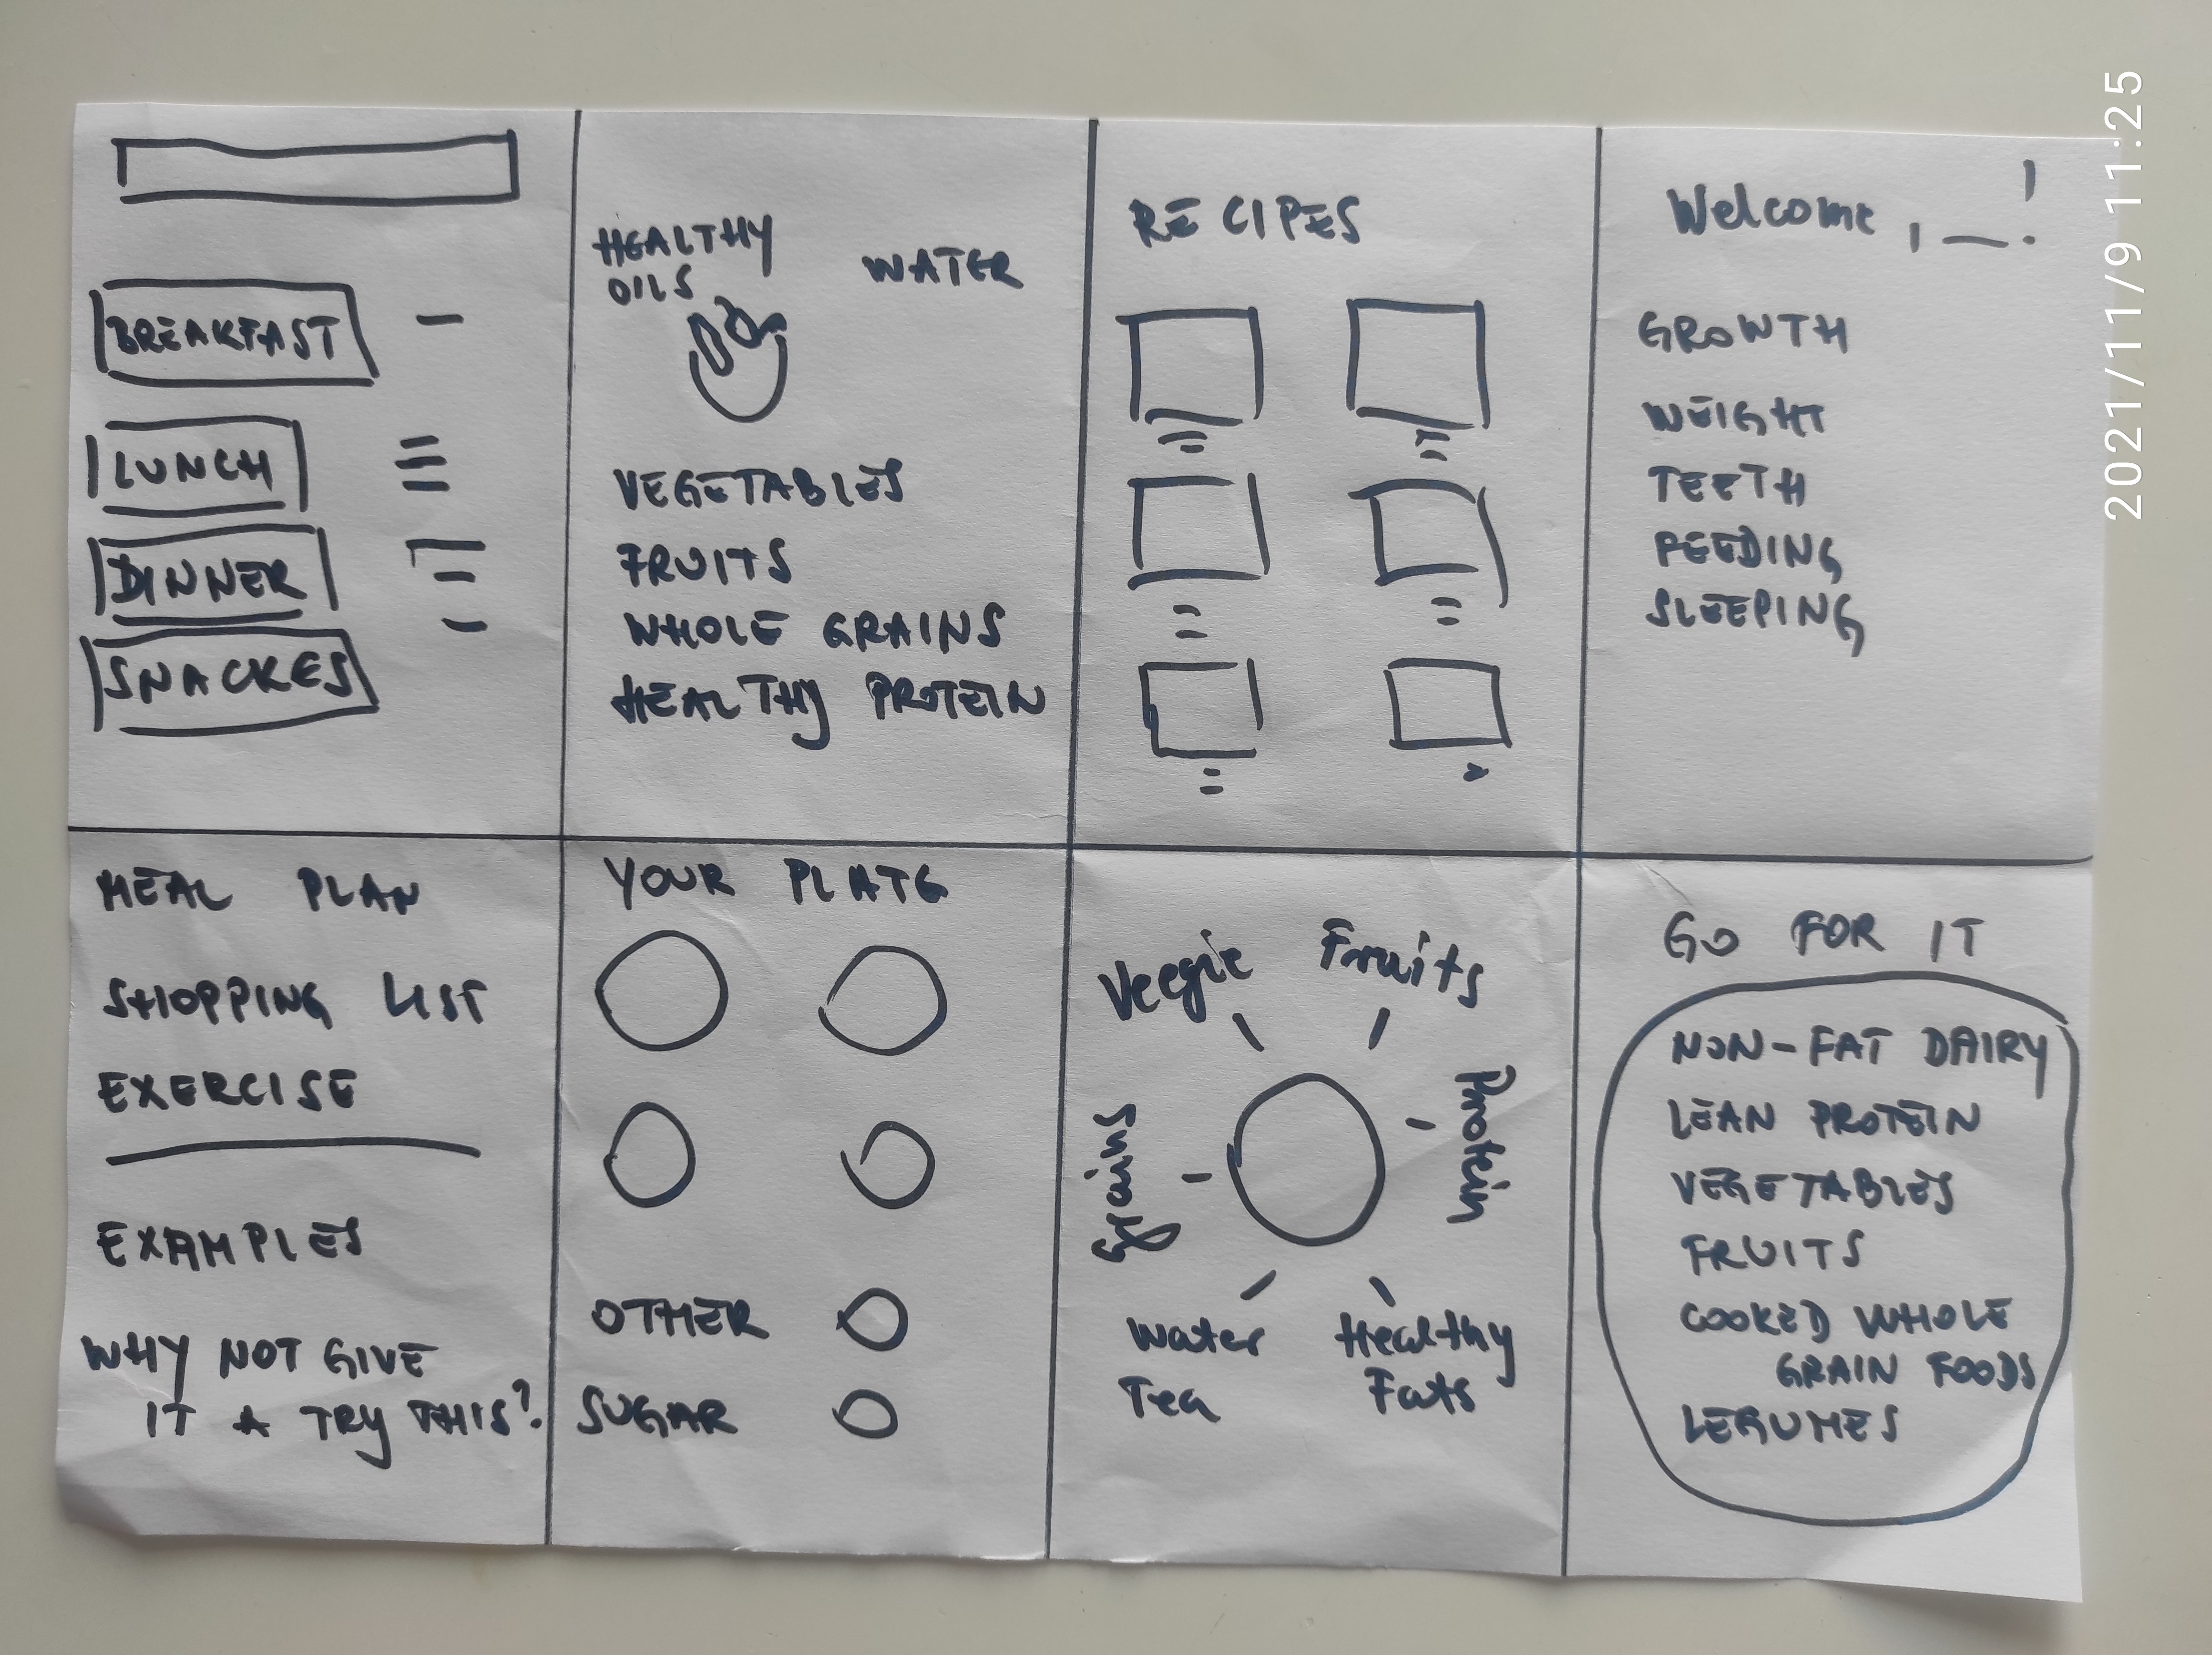 BREAKFAST
LUNCH
DINNER
SNACKES
HEALTHY
OILS
WATER
VEGETABLES
FRUITS
WHOLE GRAINS
HEALTHY PROTEIN
RECIPES
Welcome, _!
GROWTH
WEIGHT
TEETH
FEEDING
SLEEPING
MEAL PLAN
SHOPPING LIST
EXERCISE
EXAMPLES
WHY NOT GIVE
IT A TRY THIS?
YOUR PLATE
OTHER
SUGAR
Veegie
Fruits
Protein
Grains
Water
Tea
Healthy
Fats
GO FOR IT
NON-FAT DAIRY
LEAN PROTEIN
VEGETABLES
FRUITS
COOKED WHOLE
GRAIN FOODS
LEGUMES
2021/11/9 11:25